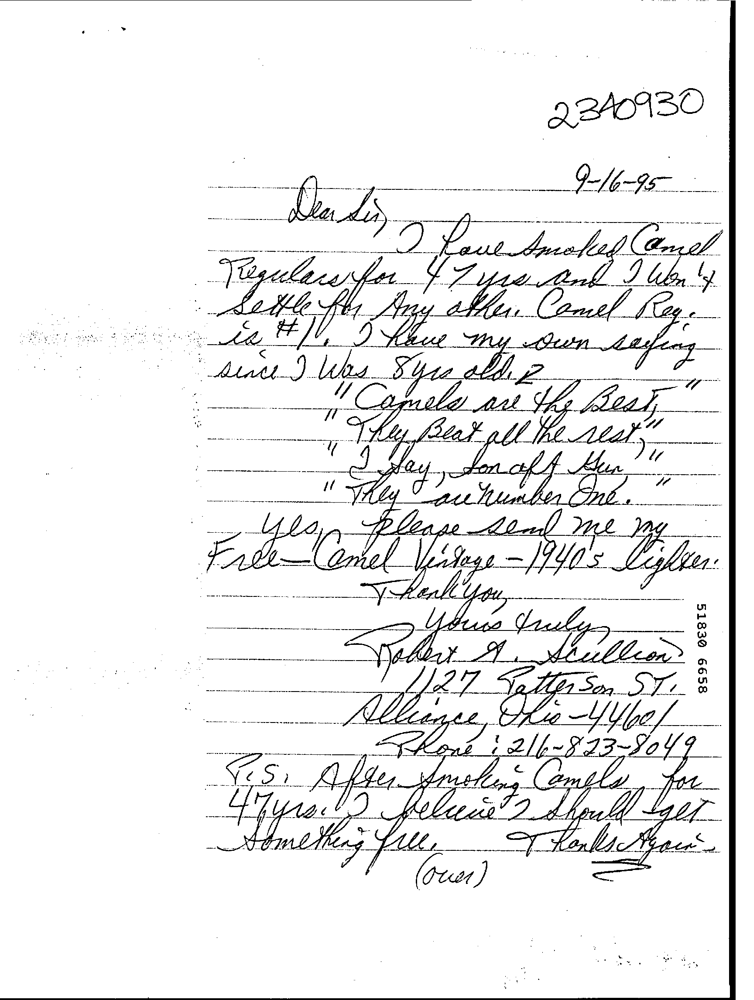 2340930
9-16-95
Dear Sir,
I have smoked Camel
Regulars for 47 yrs and I won't
settle for Any other. Camel Reg.
is #1. I have my own saying
since I was 8 yrs old.
"Camels are the Best,"
"They Beat all the rest,"
"I say, son of A Gun,"
"They are number One."
Yes, please send me my
Free - Camel Vintage - 1940's lighter.
Thank you,
Yours truly,
Robert A. Scullion
1127 Patterson ST.
Alliance, Ohio - 44601
Phone: 216-823-8049
P.S. After smoking Camels for
47 yrs. I believe I should get
something free. Thanks Again -
(over)
51830 6658